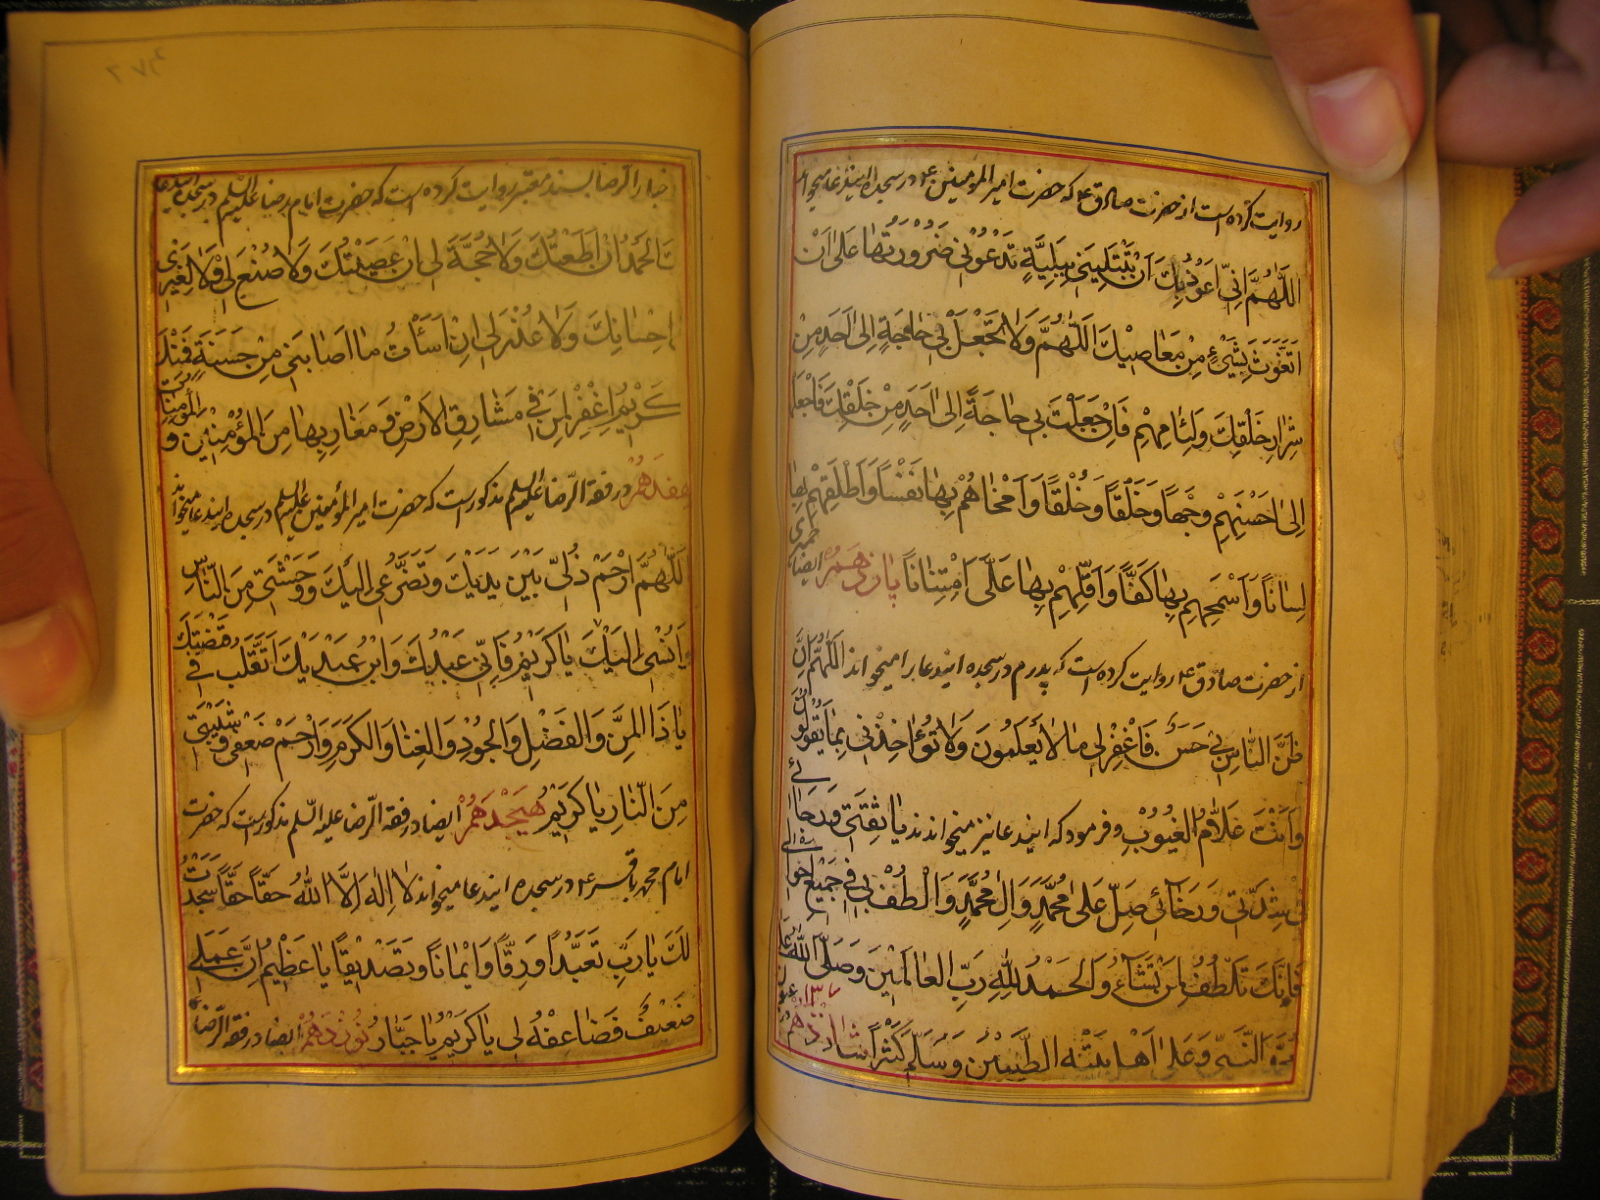 روایت کرده است از حضرت صادق ع که حضرت امیر المؤمنین ع در سجده ایندعا میخواند
اَللّٰهُمَّ اِنّی اَعُوذُبِكَ اَنْ تَبْتَلِیَنی بِبَلِیَّةٍ تَدْعُونی ضَرُورَتُها عَلیٰ اَنْ
اَتَغَوَّثَ بِشَیْءٍ مِنْ مَعاصیكَ اَللّٰهُمَّ وَلا تَجْعَلْ بی حاجَةً اِلیٰ اَحَدٍ مِنْ
شِرارِ خَلْقِكَ وَلِئامِهِمْ فَاِنْ جَعَلْتَ بی حاجَةً اِلیٰ اَحَدٍ مِنْ خَلْقِكَ فَاجْعَلْها
اِلیٰ اَحْسَنِهِمْ وَجْهاً وَخَلْقاً وَخُلْقاً وَاَسْخاهُمْ بِها نَفْساً وَاَطْلَقِهِمْ بِها
لِساناً وَاَسْمَحِهِمْ بِها كَفّاً وَاَقَلِّهِمْ بِها عَلَیَّ امْتِناناً پانزدهم ایضا
از حضرت صادق ع روایت کرده است که پدرم در سجده ایندعا را میخواند اَللّٰهُمَّ اِنَّ
ظَنَّ النّاسِ بی حَسَنٌ فَاغْفِرْلی مالا یَعْلَمُونَ وَلا تُؤاخِذْنی بِما یَقُولُونَ
وَاَنْتَ عَلّامُ الْغُیُوبِ و فرمود که ایندعا نیز میخواندند یا ثِقَتی وَرَجائی
فی شِدَّتی وَرَخائی صَلِّ عَلیٰ مُحَمَّدٍ وَآلِ مُحَمَّدٍ وَالْطُفْ بی فی جَمیعِ اَحْوالی
فَاِنَّكَ تَلْطُفُ لِمَنْ تَشاءُ وَالْحَمْدُ لِلّٰهِ رَبِّ الْعالَمینَ وَصَلَّی اللّٰهُ عَلیٰ
النَّبِیِّ وَعَلیٰ اَهْلِ بَیْتِهِ الطَّیِّبینَ وَسَلَّمَ كَثیراً شانزدهم
الرضا بسند معتبر روایت کرده است که حضرت امام رضا علیه السلم در سجده
لَكَ الْحَمْدُ اِنْ اَطَعْتُكَ وَلا حُجَّةَ لی اِنْ عَصَیْتُكَ وَلا صُنْعَ لی وَلا لِغَیْری
اِحْسانِكَ وَلا عُذْرَ لی اِنْ اَسَأْتُ ما اَصابَنی مِنْ حَسَنَةٍ فَمِنْكَ
كَریمُ اِغْفِرْ لِمَنْ فی مَشارِقِ الْاَرْضِ وَ مَغارِبِها مِنَ الْمُؤْمِنینَ وَ الْمُؤْمِناتِ
هفدهم در فقه الرضا علیه السلم مذکور است که حضرت امیر المؤمنین علیه السلم در سجده ایندعا میخواند
اَللّٰهُمَّ ارْحَمْ ذُلّی بَیْنَ یَدَیْكَ وَتَضَرُّعی اِلَیْكَ وَوَحْشَتی مِنَ النّاسِ
وَاُنْسی اِلَیْكَ یا كَریمُ فَاِنّی عَبْدُكَ وَابْنُ عَبْدَیْكَ اَتَقَلَّبُ فی قَبْضَتِكَ
یا ذَا الْمَنِّ وَالْفَضْلِ وَالْجُودِ وَالْغِنا وَالْكَرَمِ وَارْحَمْ ضَعْفی وَشَیْبَتی
مِنَ النّارِ یا كَریمُ هیجدهم ایضا در فقه الرضا علیه السلم مذکور است که حضرت
امام محمد باقر ع در سجده ایندعا میخواند لا اِلٰهَ اِلَّا اللّٰهُ حَقّاً حَقّاً سَجَدْتُ
لَكَ یارَبِّ تَعَبُّداً وَرِقّاً وَایماناً وَتَصْدیقاً یا عَظیمُ اِنَّ عَمَلی
ضَعیفٌ فَضاعِفْهُ لی یا كَریمُ یا جَبّارُ نوزدهم ایضا در فقه الرضا